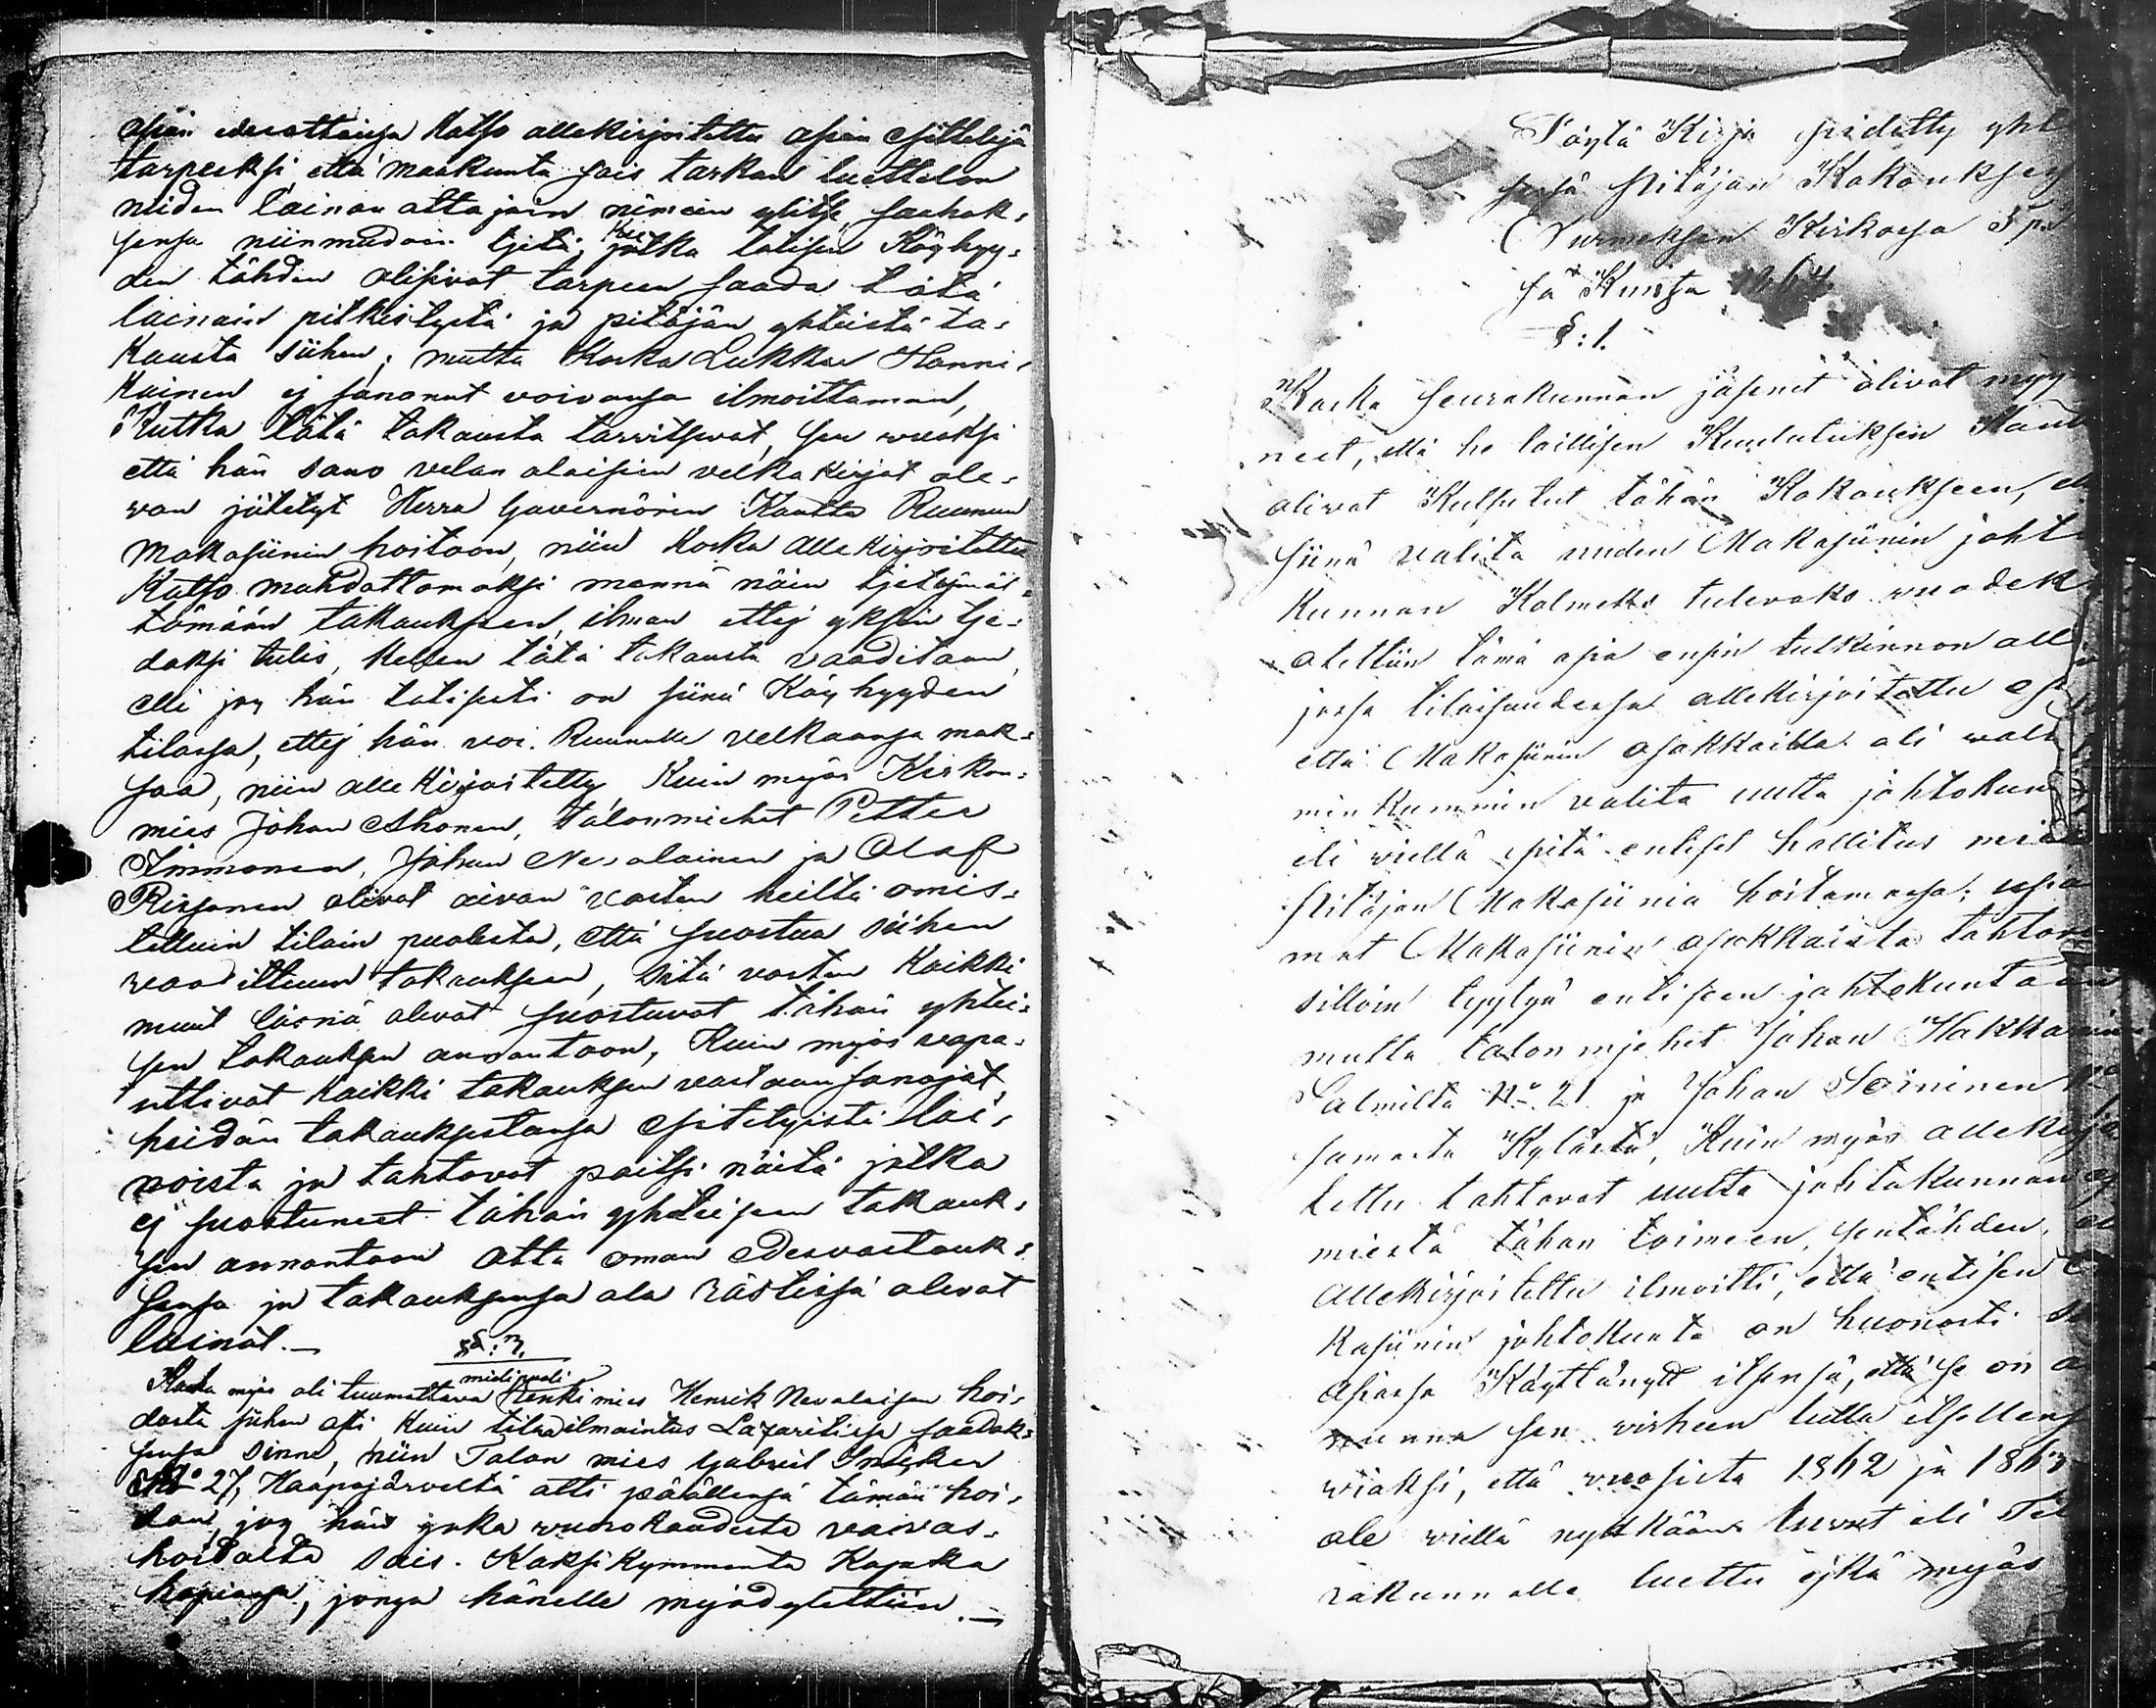 asian edesottaisa Katso allekirjoitettu asian esittelijä
tarpeeksi, että maakunta sais tarkan luettelon
niiden lainan ottajain nimein ylitse, saahak-
sensa niinmudoin tjetä, jotka totisen Köyhyy-
den tähden olisivat tarpeen saada tätä
lainain pitkistystä ja pitäjän yhteistä ta-
kausta siihen; mutta Koska Lukkar Hanni-
kainen ej sanonut voivansa ilmoittaman,
Kutka tätä takausta tarvitsevat, sen vuoksi
että hän sano velan alaisien velka kirjat ole-
van jätetyt Herra Guvernörin Kautta Ruunun
Makasiinin hoitoon, niin Koska allekirjoitettu
Katso mahdottomaksi mennä näin tjetämät-
tömään takaukseen, ilman ettej yksin tje-
doksi tulis, kenen tätä takausta vaaditaan,
elli jos hän totisesti on siinä Köyhyyden
tilassa, ettej hän voi Ruunulle velkaansa mak-
saa, niin allekirjoitettu, Kuin myös Kirkon-
mies Johan Ahonen, talonmiehet Petter
Immonen, Johan Nevalainen ja Olof
Pirsonen olivat aivan vasten heiltä omis-
tettuin tilain puolesta, että suostua siihen
vaadittuun takaukseen, sitä vasten Kaikki
muut läsnä olevat suostuvat tähän yhtei-
sen takauksen annantoon, Kuin myös vapa-
uttivat kaikki takauksen vastaansanojat,
heidän takauksestansa esitetyistä lai-
noista ja tahtovat paitsi näitä jotka
ej suostuneet tähän yhteiseen takauk-
sen annantoon otta oman edesvastauk-
sensa ja takauksensa ala rästissä olevat
lainat.—
§: 3.
Koska myös oli tuumattava mielipuoli Renkimies Henrik Nevalaisen hoi-
dosta siihen asti kuin tila ilmointus Lazaretissa saadak-
sensa sinne, niin Talon mies Gabriel Snicker
No 27, Haapajärveltä otti päällensä tämän hoi-
don, jos hän joka vuorokaudesta vaivas-
hoidolta sais. Kaksikymmentä Kopeekka
hopiassa, jonga hänelle myödytettiin.—
Pöytä Kirja pidetty yht
sesä Pitäjän Kokouksesa
Nurmeksen Kirkossa 5 p:
sä Kuusa 1864.
§: 1.
Koska seurakunnan jäsenet olivat myy
neet, että he laillisen Kuulutuksen Kaut
olivat Kutsutut tähän Kokoukseen,
siinä valita uuden Makasiinin joht
Kunnan Kolmeksi tulevaks vuodek
otettiin tämä asia ensin tutkinnon all
jossa tilaisuudessa allekirjoitettu
että Makasiinin osakkailla oli valt
minkummin valita uutta johtokun
eli viellä pitä entiset hallitus
Pitäjän Makasiinia hoitamassa;
mat Makasiinin osakkaista tahtov
silloin tyytyä entiseen johtokuntaan
mutta talonmjehet Johan Hakkarainen
Salmilta No 21 ja Johan Soininen
samasta Kylästä, Kuin myös allekirj
tettu tahtovat uutta johtokunnan
miestä tähän toimeen, sentähden,
allekirjoitettu ilmoitti, että entisen
kasiinin johtokunta on huonosti
asiassa Käyttänytt itsensä, että se on
sen virheen tulla itsellens
viaksi, että vuosista 1862 ja 1863
ole viellä nytkään luvut eli
rakunnalle luettu ejkä myös